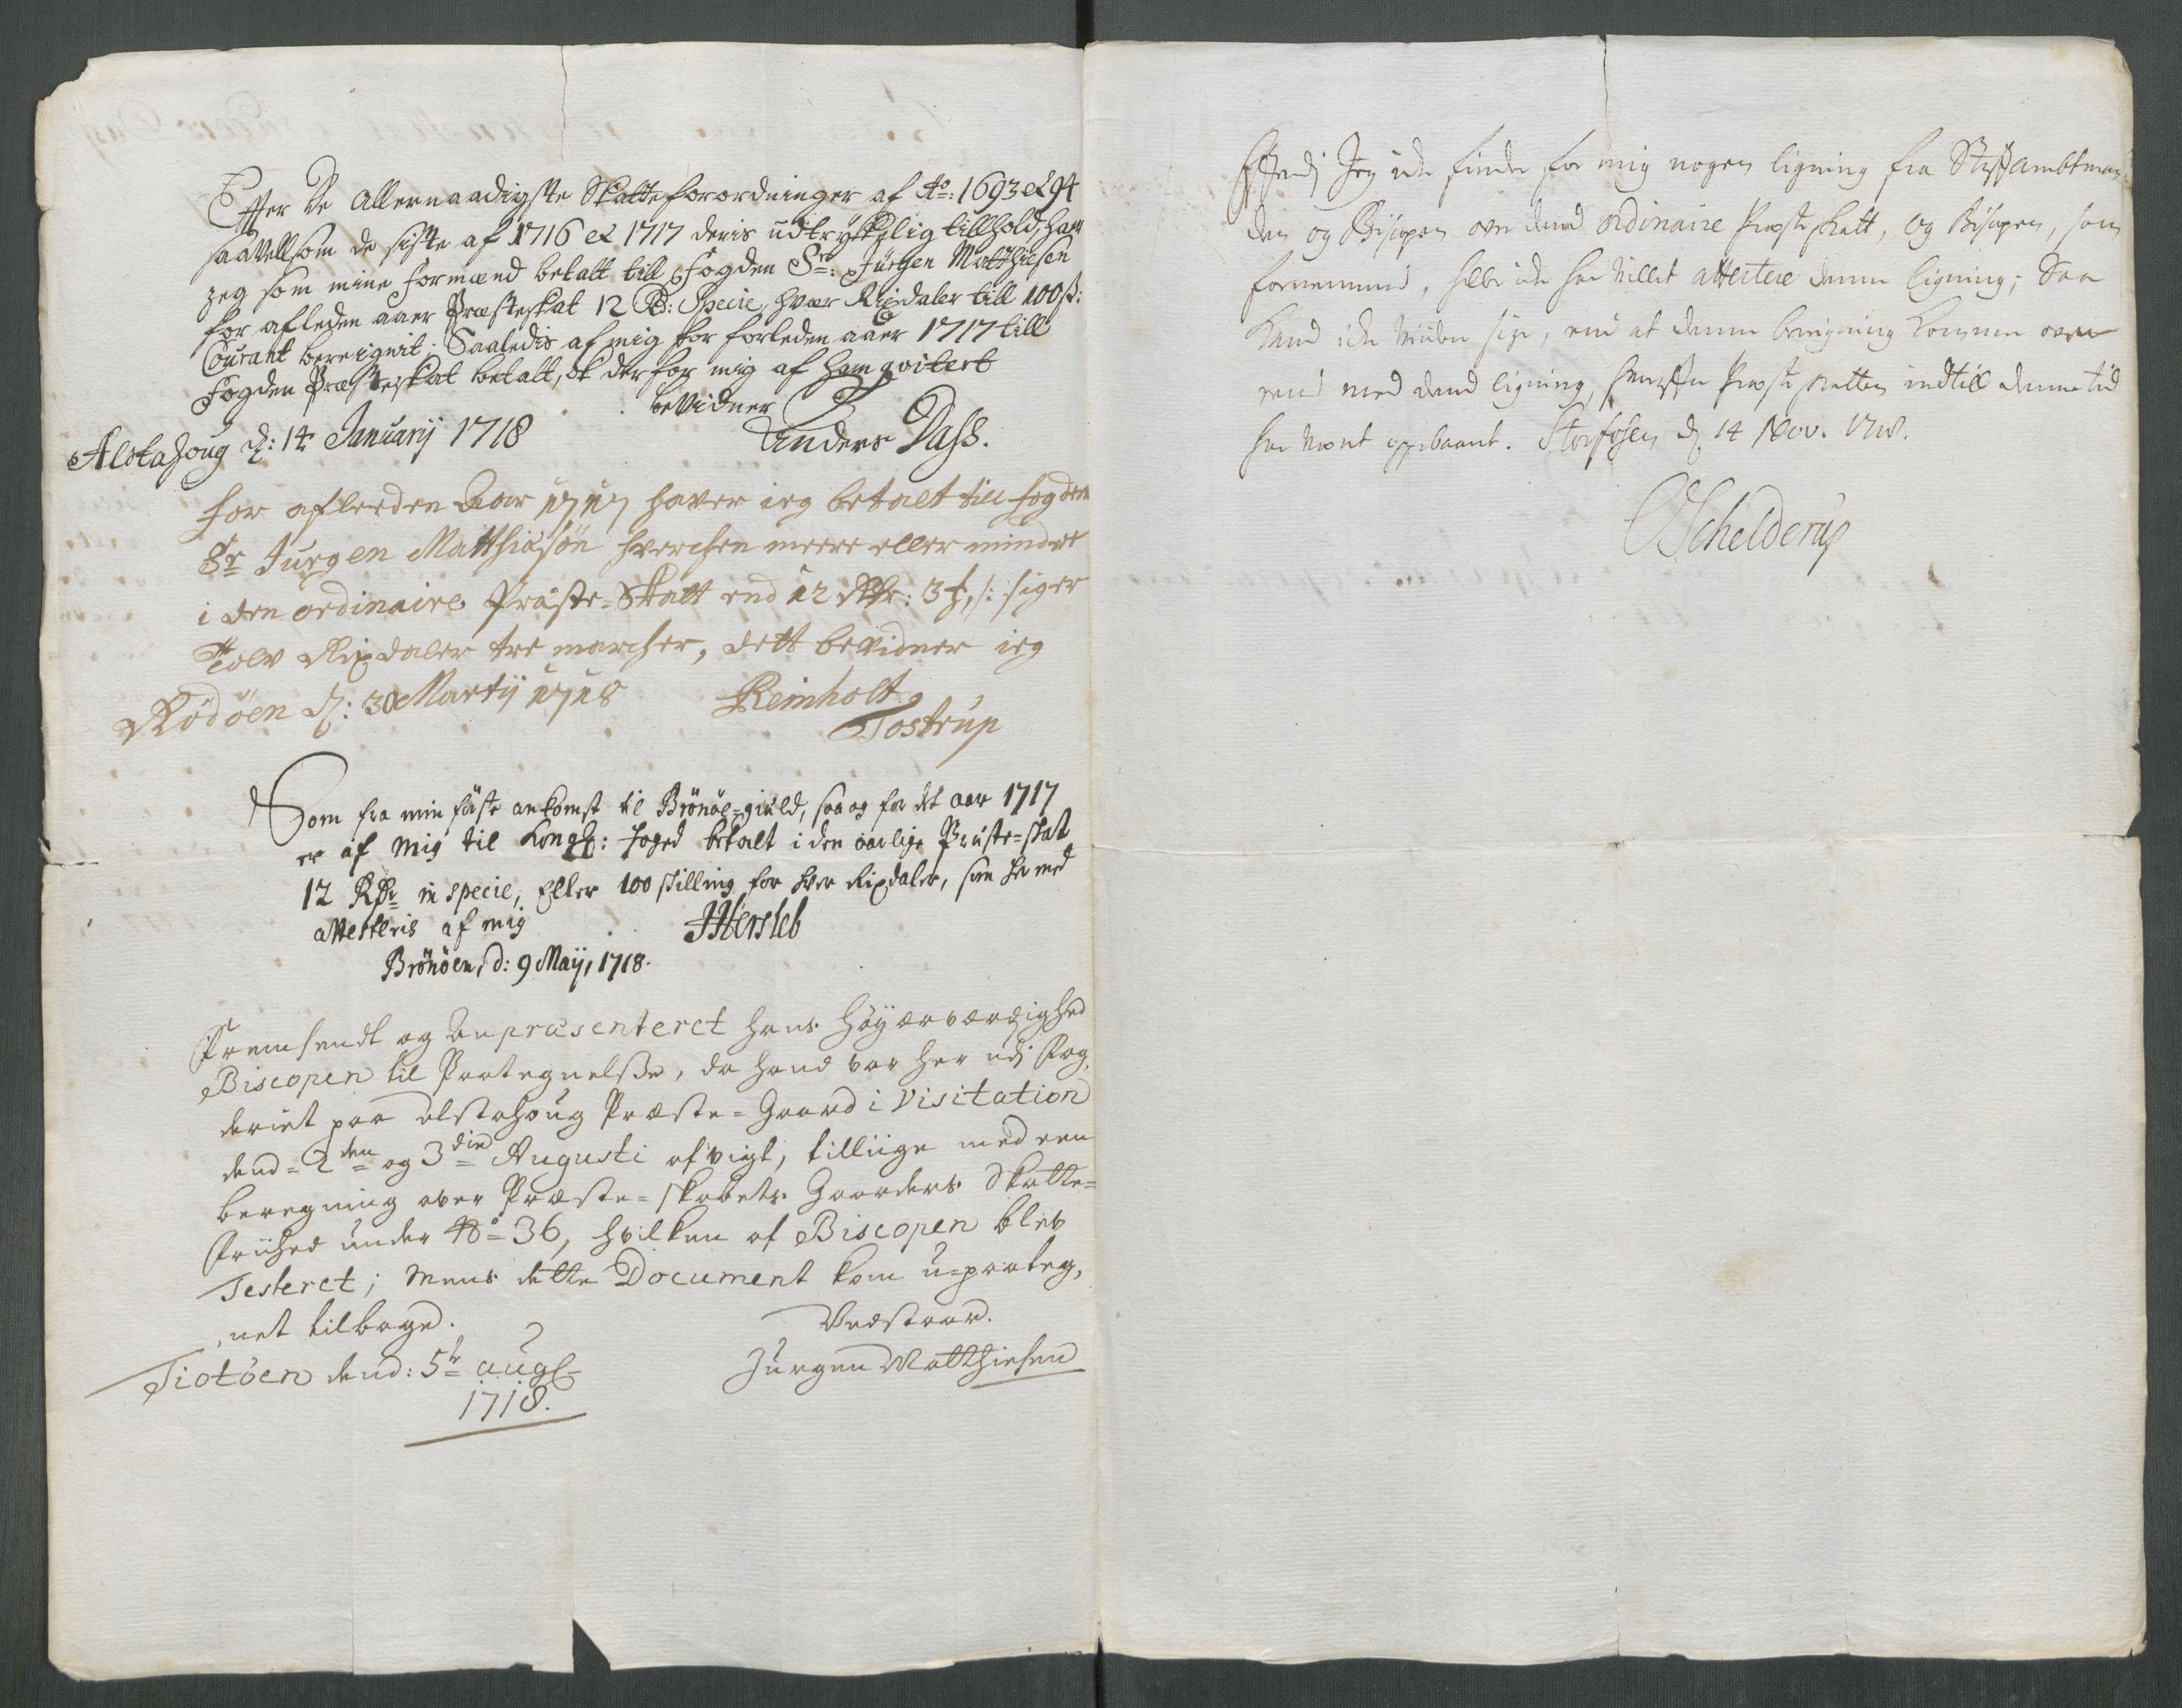 Efter De Allernaadigste Skatteforordninger af Ao: 1693 et 94
saavellsom de siste af 1716 et 1717 deris udtrÿckelig tillhold, har
jeg som mine formænd betalt till Fogden Sr: Jürgen Matthiesen
for afleden aaer Præsteskat 12 Rd: Specie, hvær Rixdaler till 100 ß:
Courant bereignit; Saaledis af mig for forleden aaer 1717 till
Fogden Præsteskat betalt, ok derfor mig af ham qvitert
bevidner
Alstahoug d: 14 Januarij 1718 Anders Dass.
for afleeden Aar 1717 haver ieg betalt till fogden
Sr Jurgen Matthiasøn hverchen meere eller mindre
i den ordinaire Præste-Skatt end 12 Rdr: 3 ₰, /: siger
Tolv Rixdaler tre marcher, dett bevidner ieg
Rødøen d: 30 Martij 1718 Reinholt
Tostrup
Som fra min første ankomst til Brönöe-gield, saa og for det aar 1717
er af mig til Kongl: foged betalt i den aarlige Præste-skat
12 Rdr in specie, Eller 100 skilling for hver Rixdaler, som her med
attesteris af mig JHersleb
Brönöen, d: 9 Maij, 1718.
Fremsendt og Anpræsenteret hans Høyærværdighed
Biscopen til Paategnelsse, da hand var her udj Fog,
deriet paa Alstahoug Præste-Gaard i Visitation
dend 2den og 3die Augusti afvigt, tilliige med een
beregning over Præste-skabets Gaarders Skatte-
Friihed under No 36, hvilken af Biscopen blev
Testeret; Mens dette Document kom u-paateg,
net tilbage. Vedstaar.
Tiotöen dend: 5te augl Jurgen Matthiesen
1718.
Efterdj Jeg icke finder for mig nogen ligning fra Stiftambtman-
den og Bispen over dend ordinaire Præsteskatt, og Bispen, som
fornemmes, heller icke har villet attestere denne ligning; Saa
kand icke viidere sige, end at denne beregning kommer over
eens med dend ligning, hvorefter Præsteskatten indtill denne tid
har været oppebaaret. Storfosen d 14 Nov. 1718.
OSchelderup